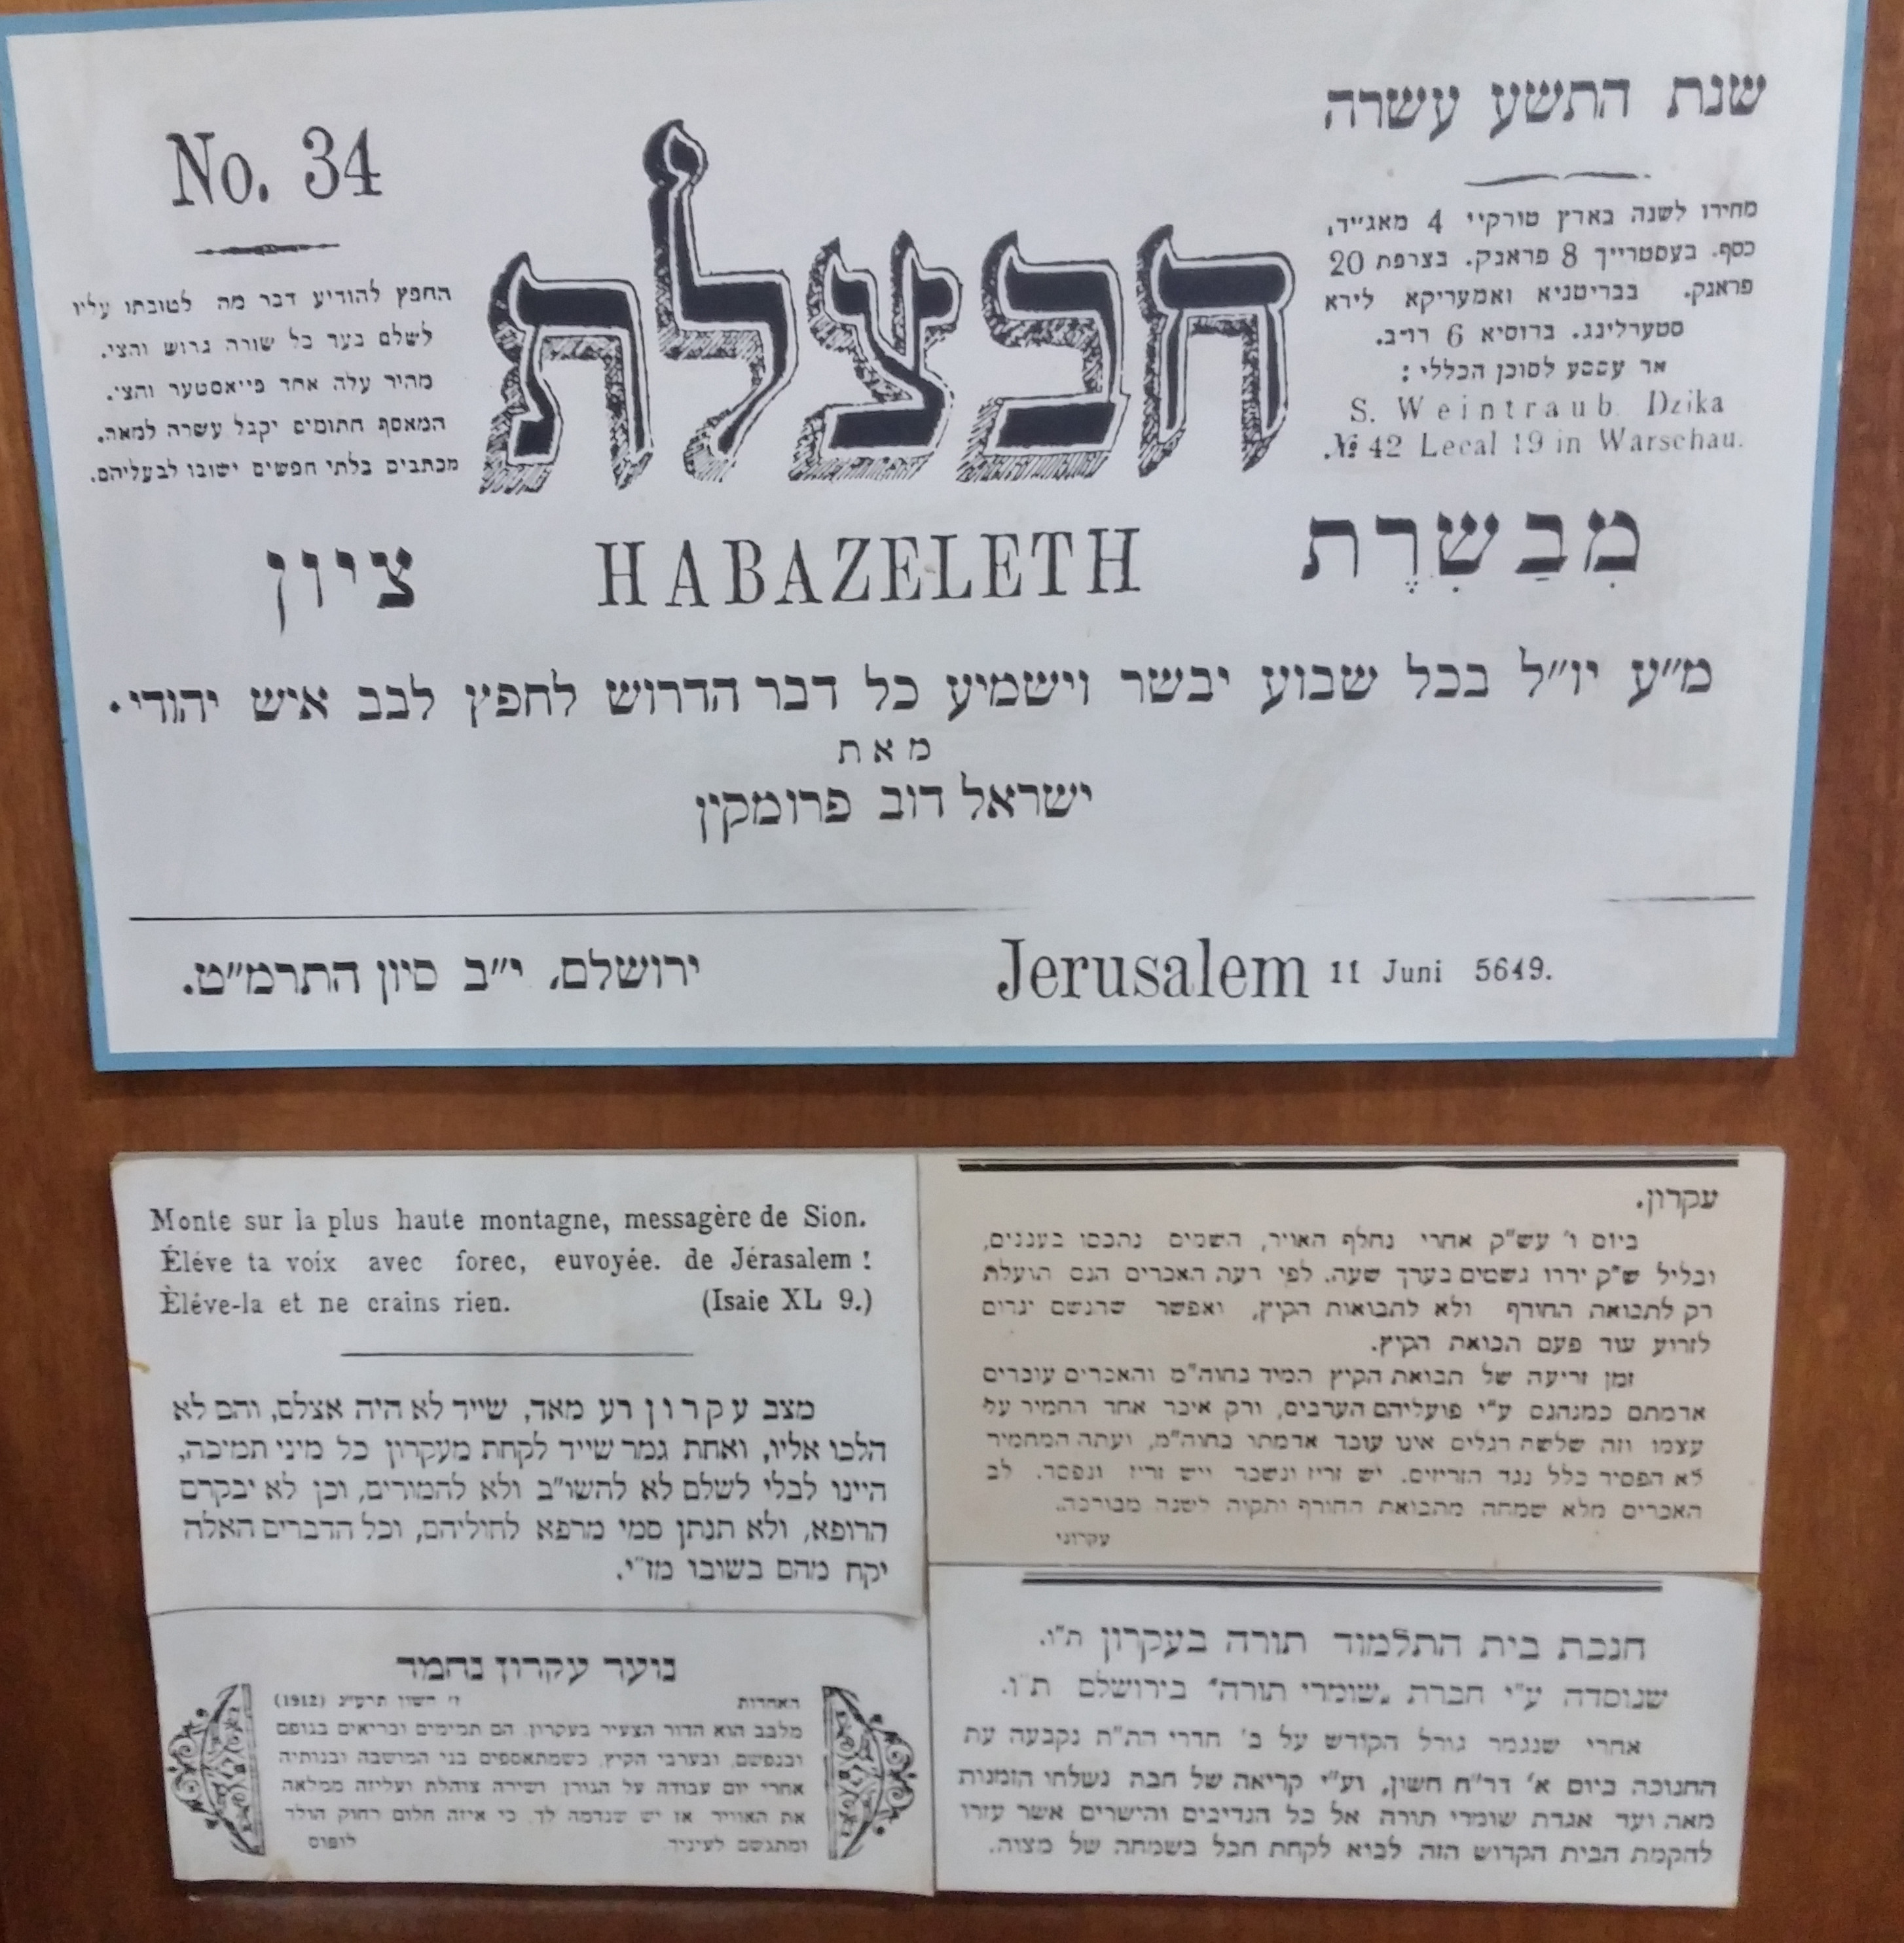 שנת התשע עשרה
מחירו לשנה בארץ טורקיי 4 מאג״יד,
כסף. בעסטרייך 8 פראנק. בצרפת 20
פראנק. בבריטניא ואמעריקא לירא
סטערלינג. ברוסיא 6 רו״ב.
לסוכן הכללי :
S. Weintraub Dzika
№ 42 Lecal 19 in Warschau.
חבצלת
No. 34
החפץ להודיע דבר מה לטובתו עליו
לשלם בער כל שורה גרוש וחצי.
מחיר עלה אחד פייאסטער וחצי.
המאסף חתומים יקבל עשרה למאה.
מכתבים בלתי חפשים ישובו לבעליהם.
מְבַשֶׂרֶת HABAZELETH ציון
מ״ע יו״ל בכל שבוע יבשר וישמיע כל דבר הדרוש לחפץ לבב איש יהודי.
מאת
ישראל דוב פרומקין
Jerusalem 11 Juni 5649.
ירושלם, י״ב סיון התרמ״ט.
עקרון.
ביום ו׳ עש״ק אחרי נחלף האויר, השמים נתכסו בעננים,
ובליל ש״ק ירדו גשמים בערך שעה. לפי דעת האכרים הגם תועלת
רק לתבואת החורף ולא לתבואות הקיץ, ואפשר שהגשם יגרום
לזרוע עוד פעם תבואת הקיץ.
זמן זריעה של תבואת הקיץ תמיד בחוה״מ והאכרים עובדים
אדמתם כמנהגם ע״י פועליהם הערבים, ורק איכר אחד החמיר על
עצמו וזה שלשת רגלים אינו עובד אדמתו בחוה״מ, ועתה המחמיר
לא הפסיד כלל נגד הזריזים. יש זריז ונשכר ויש זריז ונפסד. לב
האכרים מלא שמחה מתבואת החורף ותקוה לשנה מבורכה.
עקרוני
Monte sur la plus haute montagne, messagère de Sion.
Éléve ta voix avec forec, euvoyée. de Jérasalem !
Èléve-la et ne crains rien. (Isaie XL 9.)
מצב עקרון רע מאד, שייד לא היה אצלם, והם לא
הלכו אליו, ואחת גמר שייד לקחת מעקרון כל מיני תמיכה,
היינו לבלי לשלם לא להשו״ב ולא להמורים, וכן לא יבקרם
הרופא, ולא תנתן סמי מרפא לחוליהם, וכל הדברים האלה
יקח מהם בשובו מז״י.
חנכת בית התלמוד תורה בעקרון ת״ו.
שנוסדה ע״י חברת „שומרי תורה״ בירושלם ת״ו.
אחרי שנגמר גורל הקודש על ב׳ חדרי הת״ת נקבעה עת
החנוכה ביום א׳ דר״ח חשון, וע״י קריאה של חבה נשלחו הזמנות
מאת ועד אגדת שומרי תורה אל כל הנדיבים והישרים אשר עזרו
להקמת הבית הקדוש הזה לבוא לקחת חבל בשמחה של מצוה.
נוער עקרון נחמד
האחדות ז׳ חשון תרע״ג (1912)
מלבב הוא הדור הצעיר בעקרון. הם תמימים ובריאים בגופם
ובנפשם. ובערבי הקיץ, כשמתאספים בני המושבה ובנותיה
אחרי יום עבודה על הגורן ושירה צוהלת ועליזה ממלאה
את האוויר אז יש שנדמה לך, כי איזה חלום רחוק הולך
ומתגשם לעיניך. לופוס